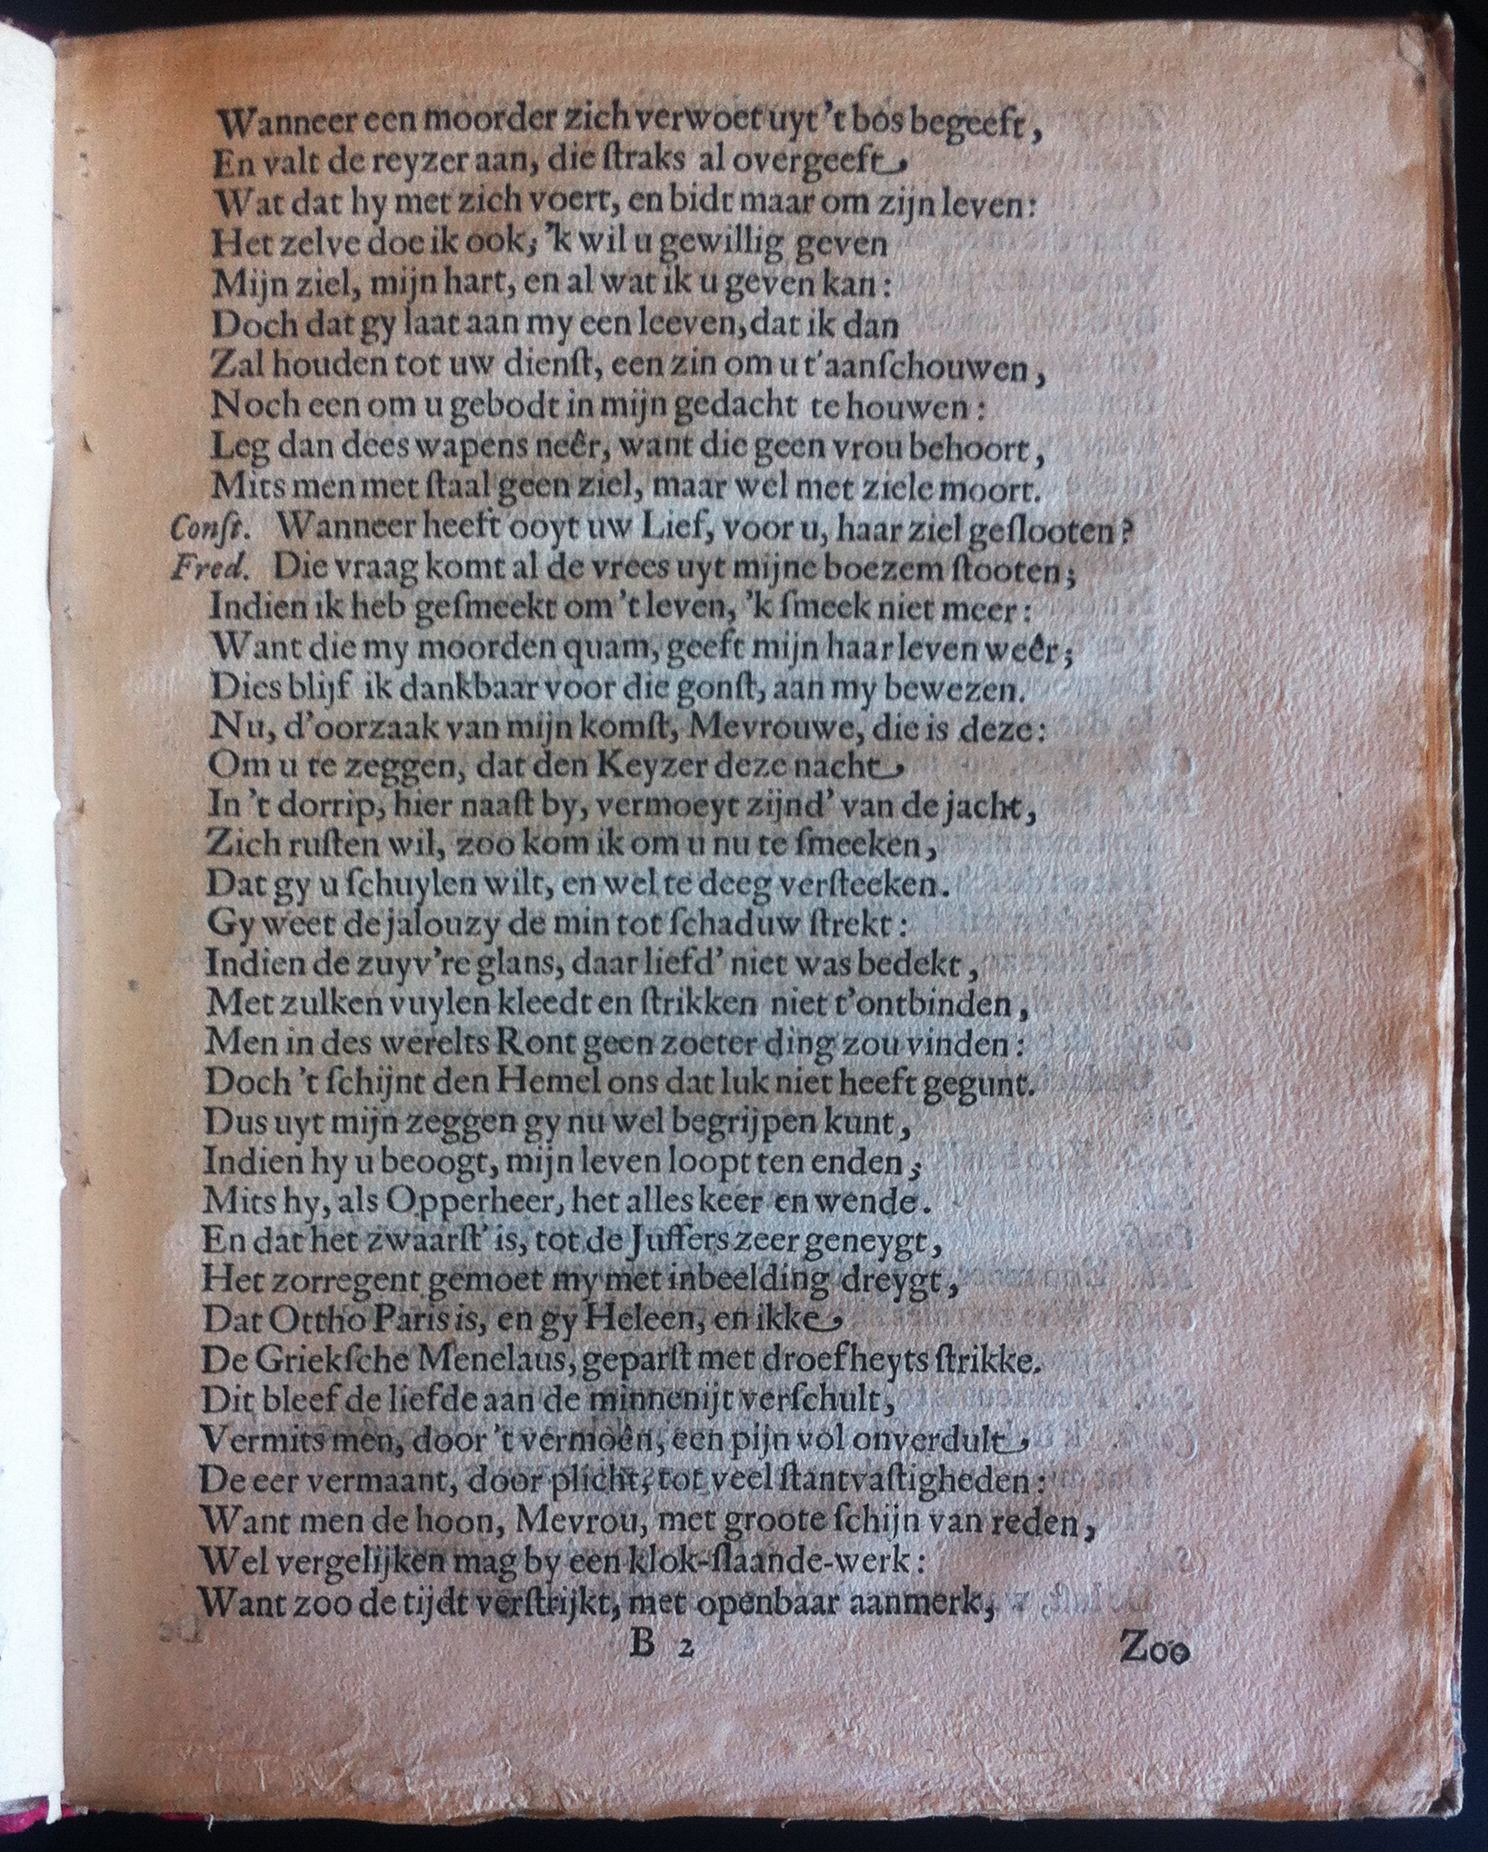 Wanneer een moorder zich verwoet uyt 't bos begeeft,
En valt de reyzer aan, die ſtraks al overgeeft,
Wat dat hy met zich voert, en bidt maar om zijn leven:
Het zelve doe ik ook, 'k wil u gewillig geven
Mijn ziel, mijn hart, en al wat ik u geven kan:
Doch dat gy laat aan my een leeven, dat ik dan
Zal houden tot uw dienſt, een zin om u t'aanſchouwen,
Noch een om u gebodt in mijn gedacht te houwen:
Leg dan dees wapens neêr, want die geen vrou behoort,
Mits men met ſtaal geen ziel, maar wel met ziele moort.
Conſt. Wanneer heeft ooyt uw Lief, voor u, haar ziel geſlooten?
Fred. Die vraag komt al de vrees uyt mijne boezem ſtooten;
Indien ik heb geſmeekt om 't leven, 'k ſmeek niet meer:
Want die my moorden quam, geeft mijn haar leven weêr;
Dies blijf ik dankbaar voor die gonſt, aan my bewezen.
Nu, d'oorzaak van mijn komſt, Mevrouwe, die is deze:
Om u te zeggen, dat den Keyzer deze nacht,
In 't dorrip, hier naaſt by, vermoeyt zijnd' van de jacht,
Zich ruſten wil, zoo kom ik om u nu te ſmeeken,
Dat gy u ſchuylen wilt, en wel te deeg verſteeken.
Gy weet de jalouzy de min tot ſchaduw ſtrekt:
Indien de zuyv're glans, daar liefd' niet was bedekt,
Met zulken vuylen kleedt en ſtrikken niet t'ontbinden,
Men in des werelts Ront geen zoeter ding zou vinden:
Doch 't ſchijnt den Hemel ons dat luk niet heeft gegunt.
Dus uyt mijn zeggen gy nu wel begrijpen kunt,
Indien hy u beoogt, mijn leven loopt ten enden;
Mits hy, als Opperheer, het alles keer en wende.
En dat het zwaarſt' is, tot de Juffers zeer geneygt,
Het zorregent gemoet my met inbeelding dreygt,
Dat Ottho Paris is, en gy Heleen, en ikke,
De Griekſche Menelaus, geparſt met droefheyts ſtrikke.
Dit bleef de liefde aan de minnenijt verſchult,
Vermits men, door 't vermoên, een pijn vol onverdult,
De eer vermaant, door plicht, tot veel ſtantvaſtigheden:
Want men de hoon, Mevrou, met groote ſchijn van reden,
Wel vergelijken mag by een klok-ſlaande-werk:
Want zoo de tijdt verſtrijkt, met openbaar aanmerk,
B 2
Zoo